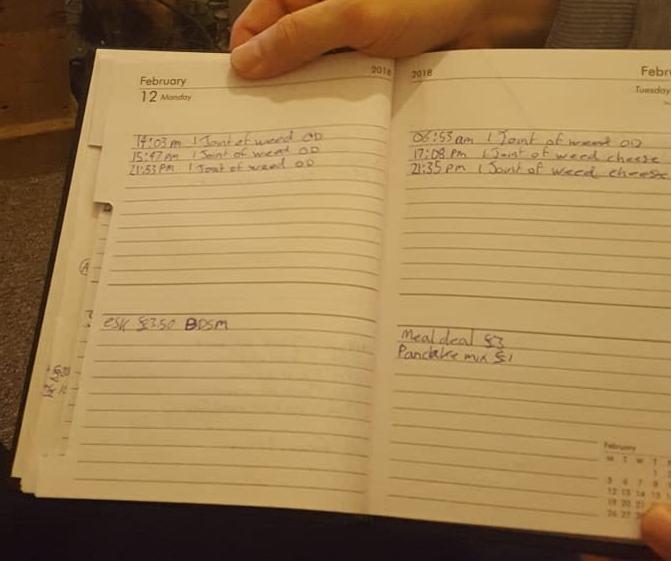 February
12 Monday
2018
14:03 pm 1 Joint of weed OD
15:47 pm 1 Joint of weed OD
21:53 pm 1 Joint of weed OD
£3.50 BDSM
2018
Febr
Tuesday
06:53 am 1 Joint of weed OD
17:08 pm 1 Joint of weed cheese
21:35 pm 1 Joint of weed cheese
Meal deal £3
Pancake mix £1
February
M T W T
5 6 7 8
12 13 14 15
19 20 21
26 27